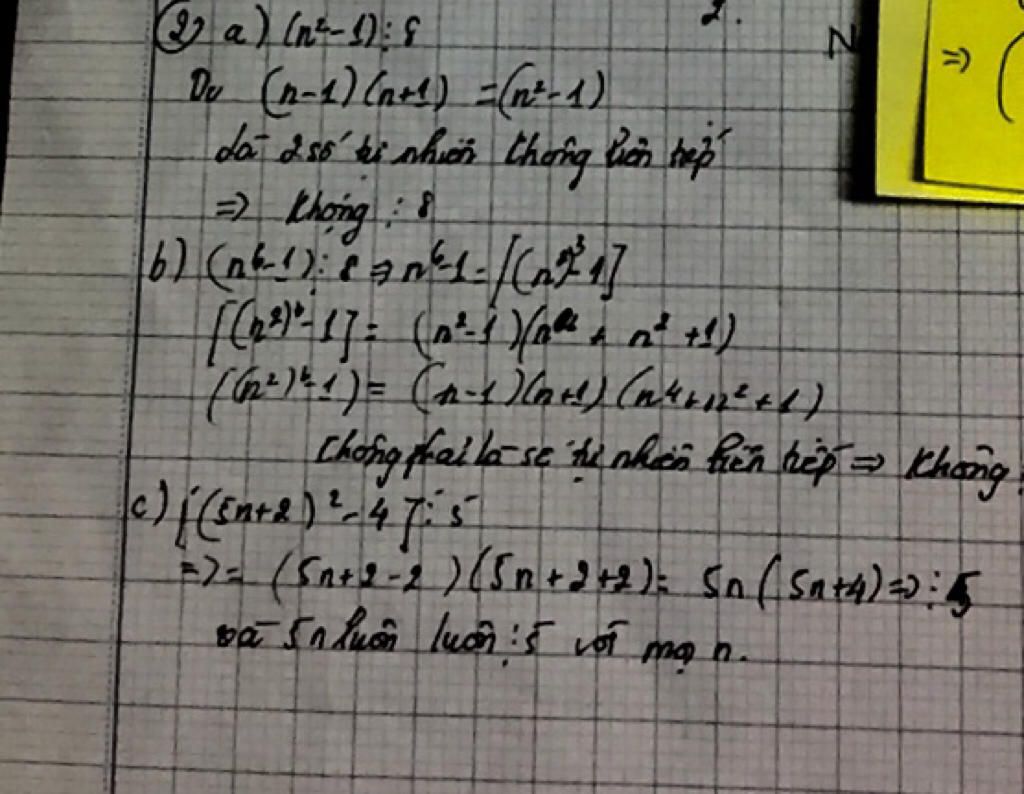 2.
N
=> (
② a) (n²-1)⋮8
Do (n-1)(n+1) =(n²-1)
là 2 số tự nhiên không liên tiếp
=> không ⋮ 8
b) (n⁶-1)⋮8 => n⁶-1=[(n²)³-1]
[(n²)⁶-1]= (n²-1)(n⁴ + n² +1)
((n²)⁶-1)= (n-1)(n+1)(n⁴+n²+1)
không phải là số tự nhiên liên tiếp => không
c) [(5n+2)²-4]⋮5
=>= (5n+2-2)(5n+2+2)= 5n(5n+4)=>⋮5
và 5n luôn luôn ⋮5 với mọi n.